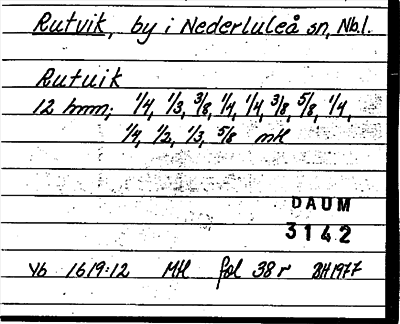 Rutvik, by i Nederluleå sn, Nb.l.
Rutuik
12 hmn; 1/4, 1/3, 3/8, 1/4, 1/4, 3/8, 5/8, 1/4,
1/4, 1/2, 1/3, 5/8 mtl
DAUM
3142
Vb 1619:12 Mtl fol 38 r BH1977